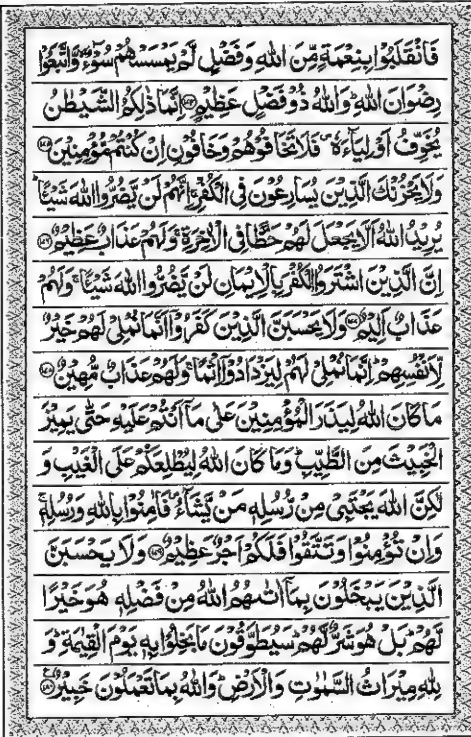 فَانْقَلَبُوْا بِنِعْمَةٍ مِّنَ اللهِ وَفَضْلٍ لَّمْ يَمْسَسْهُمْ سُوْٓءٌ ۙ وَّاتَّبَعُوْا
رِضْوَانَ اللهِ ؕ وَاللهُ ذُوْ فَضْلٍ عَظِيْمٍ ﴿۱۷۴﴾ اِنَّمَا ذٰلِكُمُ الشَّيْطٰنُ
يُخَوِّفُ اَوْلِيَآءَهٗ ۪ فَلَا تَخَافُوْهُمْ وَخَافُوْنِ اِنْ كُنْتُمْ مُّؤْمِنِيْنَ ﴿۱۷۵﴾
وَلَا يَحْزُنْكَ الَّذِيْنَ يُسَارِعُوْنَ فِى الْكُفْرِ ۚ اِنَّهُمْ لَنْ يَّضُرُّوا اللهَ شَيْـًٔا ؕ
يُرِيْدُ اللهُ اَلَّا يَجْعَلَ لَهُمْ حَظًّا فِى الْاٰخِرَةِ ۚ وَلَهُمْ عَذَابٌ عَظِيْمٌ ﴿۱۷۶﴾
اِنَّ الَّذِيْنَ اشْتَرَوُا الْكُفْرَ بِالْاِيْمَانِ لَنْ يَّضُرُّوا اللهَ شَيْـًٔا ۚ وَلَهُمْ
عَذَابٌ اَلِيْمٌ ﴿۱۷۷﴾ وَلَا يَحْسَبَنَّ الَّذِيْنَ كَفَرُوْۤا اَنَّمَا نُمْلِىْ لَهُمْ خَيْرٌ
لِّاَنْفُسِهِمْ ؕ اِنَّمَا نُمْلِىْ لَهُمْ لِيَزْدَادُوْۤا اِثْمًا ۚ وَلَهُمْ عَذَابٌ مُّهِيْنٌ ﴿۱۷۸﴾
مَا كَانَ اللهُ لِيَذَرَ الْمُؤْمِنِيْنَ عَلٰى مَاۤ اَنْتُمْ عَلَيْهِ حَتّٰى يَمِيْزَ
الْخَبِيْثَ مِنَ الطَّيِّبِ ؕ وَمَا كَانَ اللهُ لِيُطْلِعَكُمْ عَلَى الْغَيْبِ وَ
لٰكِنَّ اللهَ يَجْتَبِىْ مِنْ رُّسُلِهٖ مَنْ يَّشَآءُ ۪ فَاٰمِنُوْا بِاللهِ وَرُسُلِهٖ ۚ
وَاِنْ تُؤْمِنُوْا وَتَتَّقُوْا فَلَكُمْ اَجْرٌ عَظِيْمٌ ﴿۱۷۹﴾ وَلَا يَحْسَبَنَّ
الَّذِيْنَ يَبْخَلُوْنَ بِمَاۤ اٰتٰىهُمُ اللهُ مِنْ فَضْلِهٖ هُوَ خَيْرًا
لَّهُمْ ؕ بَلْ هُوَ شَرٌّ لَّهُمْ ؕ سَيُطَوَّقُوْنَ مَا بَخِلُوْا بِهٖ يَوْمَ الْقِيٰمَةِ ؕ وَ
لِلّٰهِ مِيْرَاثُ السَّمٰوٰتِ وَالْاَرْضِ ؕ وَاللهُ بِمَا تَعْمَلُوْنَ خَبِيْرٌ ﴿۱۸۰﴾